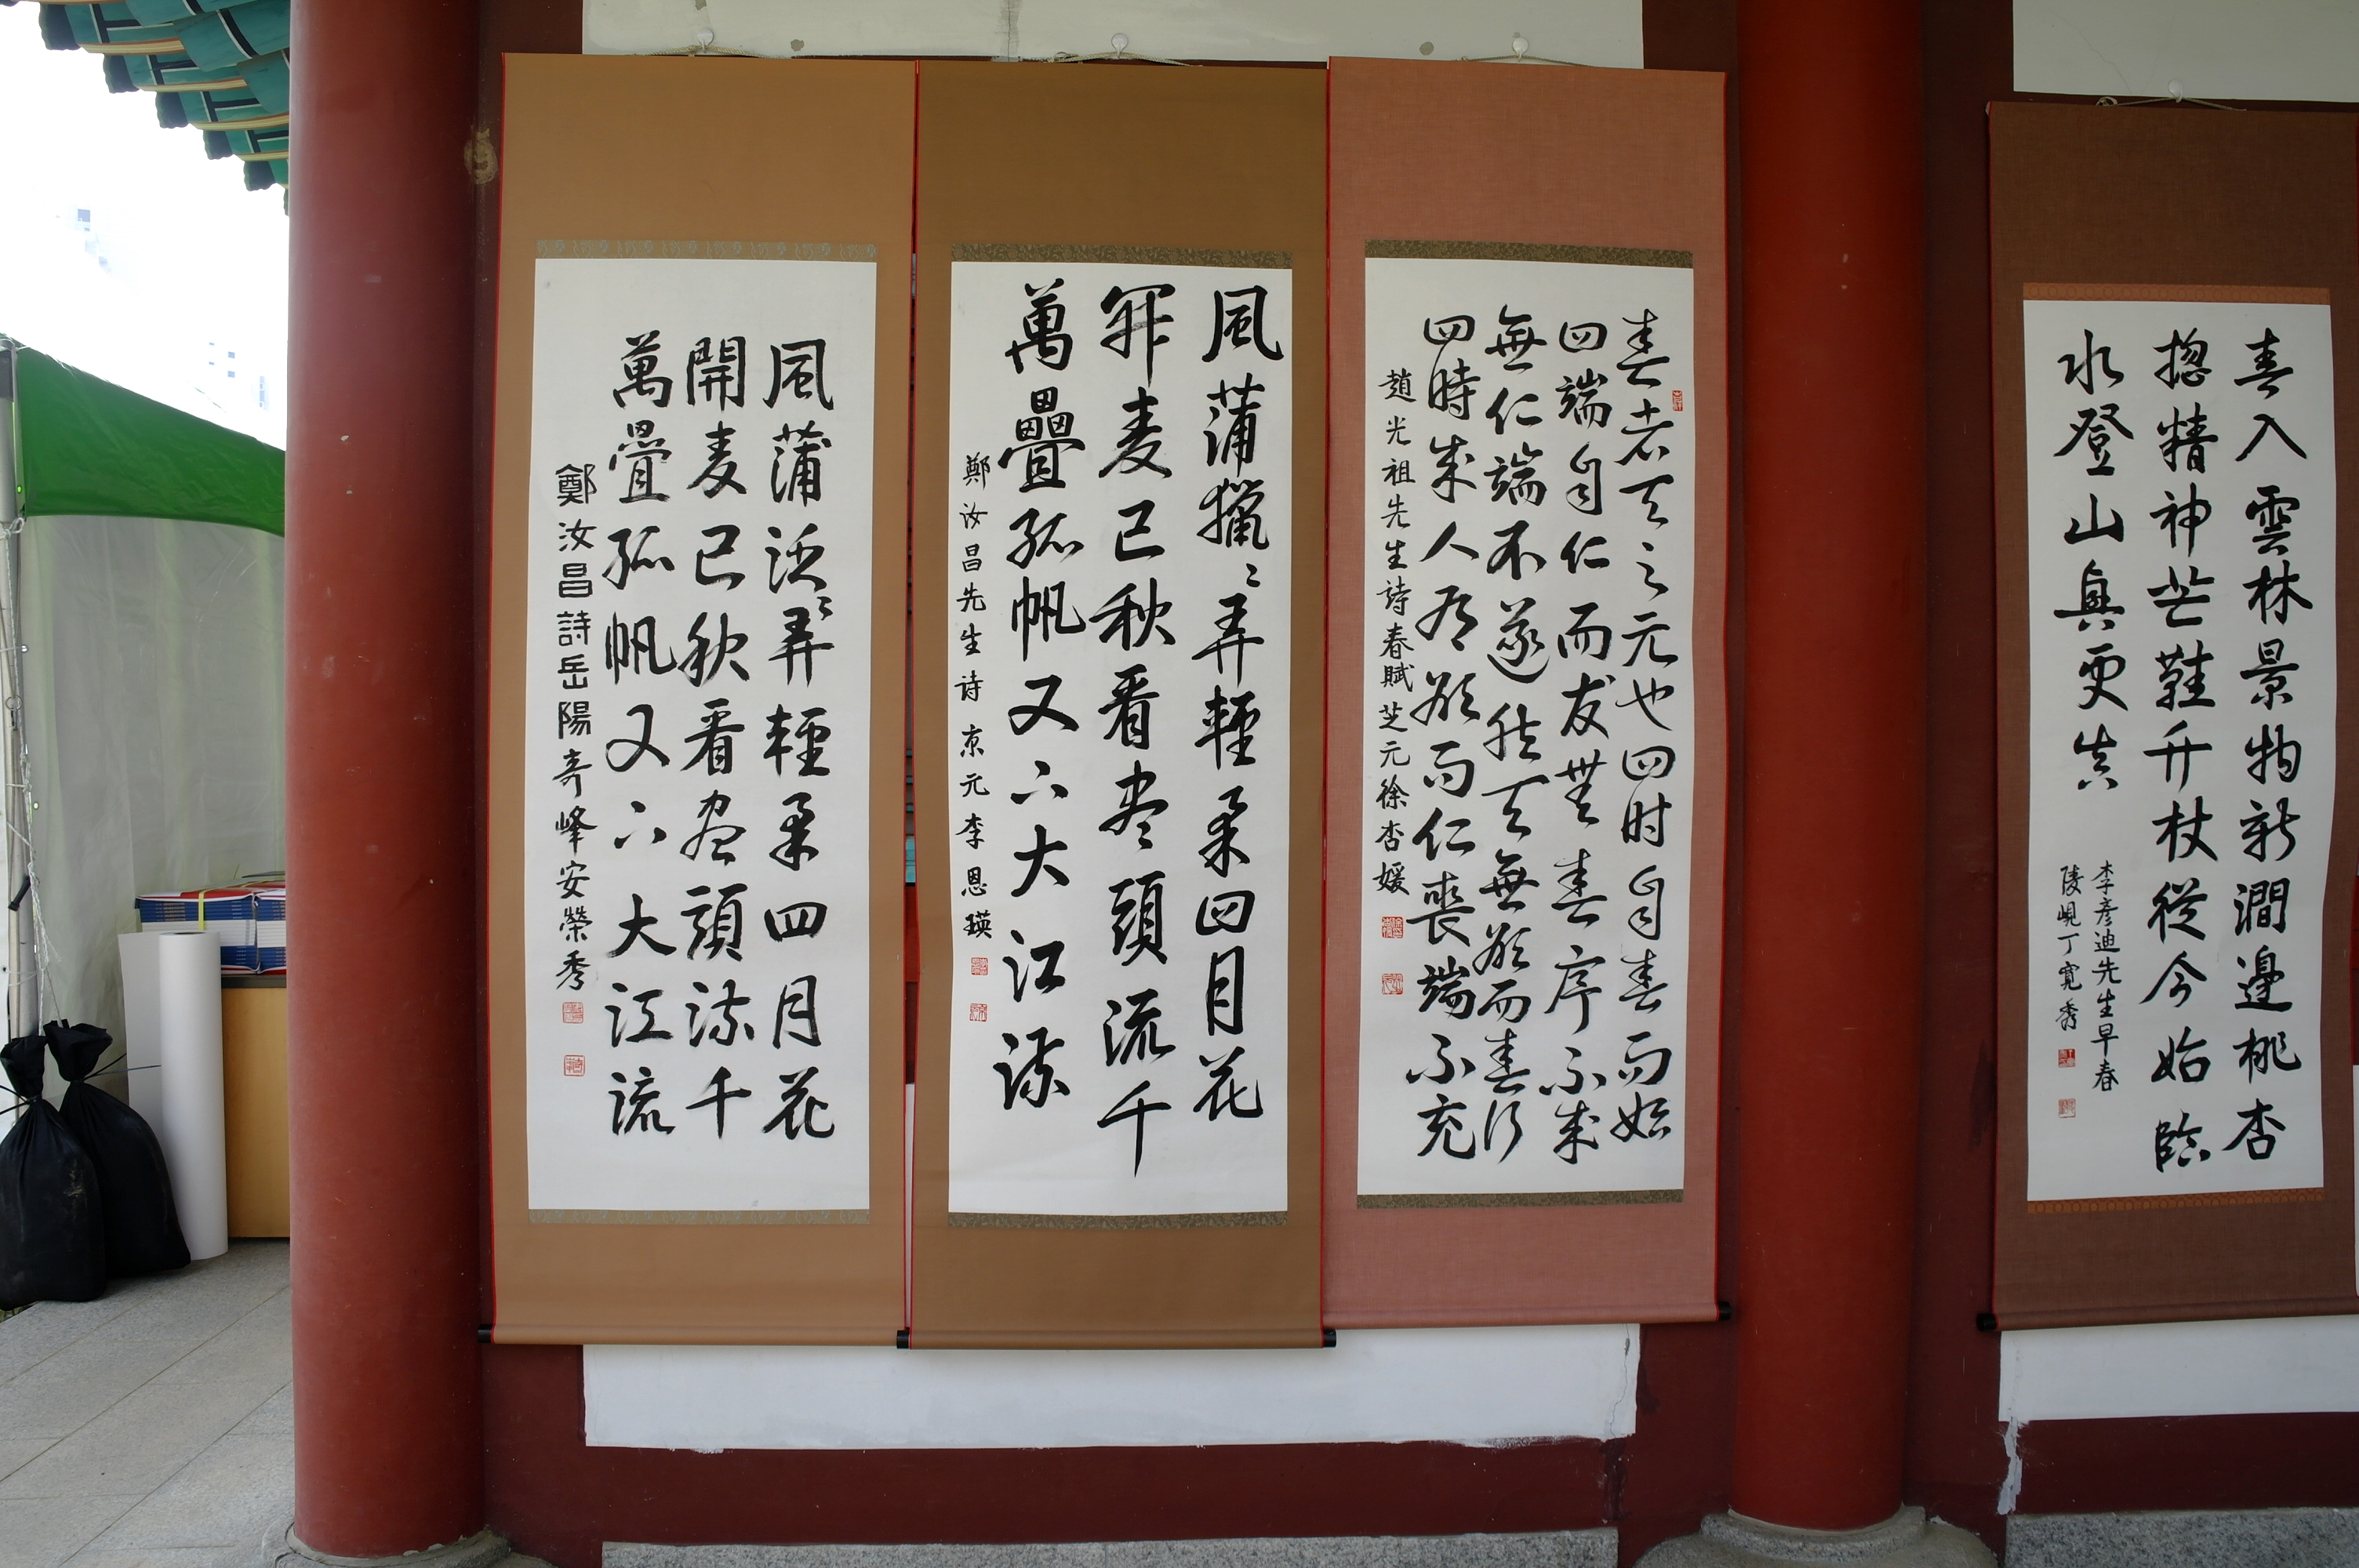 春入雲林景物新澗邊桃杏
揔精神芒鞋竹杖從今始臨
水登山興更真
李彦迪先生早春
陵峴丁寬秀
春者天之元也四时自春而始
四端自仁而发無春序不成
無仁端不遂然天無欲而春行
四時成人有欲而仁喪端不充
趙光祖先生詩春賦芝元徐杏媛
風蒲獵〻弄輕柔四月花
開麦已秋看盡頭流千
萬疊孤帆又下大江流
鄭汝昌先生诗京元李恩瑛
風蒲泛〻弄輕柔四月花
開麦已秋看盡頭流千
萬疊孤帆又下大江流
鄭汝昌詩岳陽奇峰安榮秀